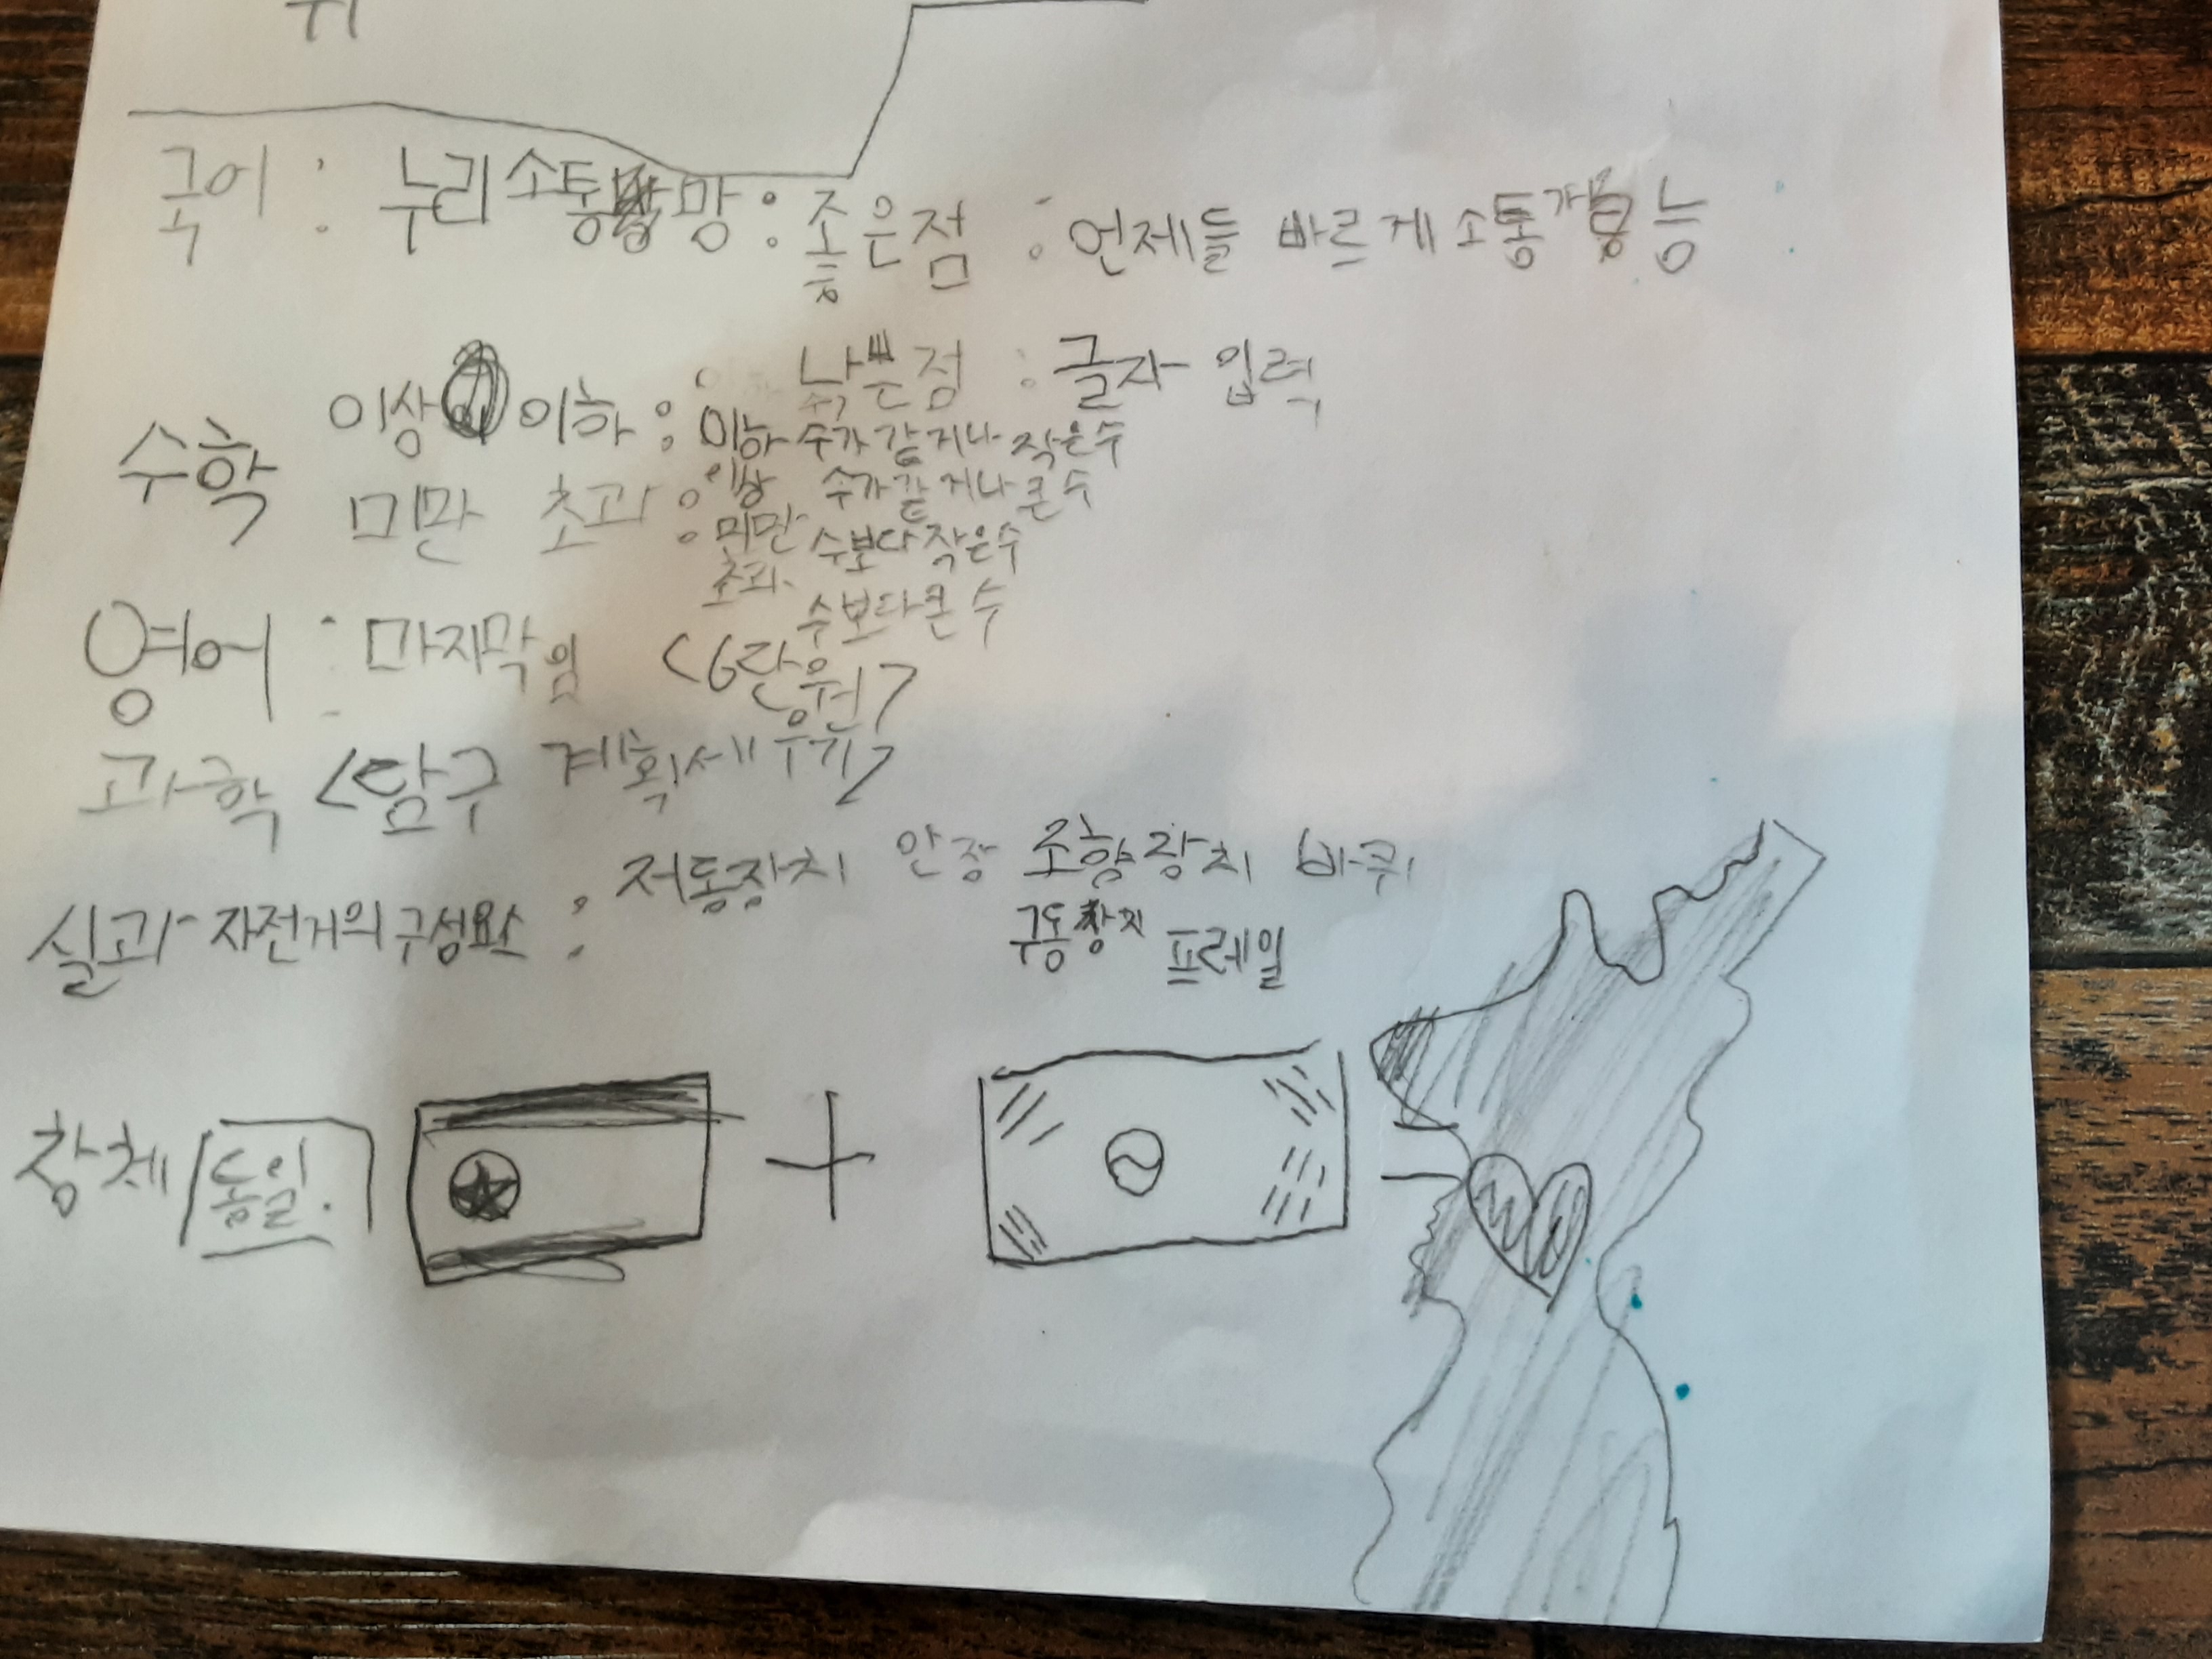 국어 : 누리소통망 : 좋은점 : 언제들 바르게 소통가능
나쁜점 : 글자 입력
수학 이상 이하 : 이하 수가 같거나 작은수
이상 수가 같거나 큰 수
미만 초과 : 미만 수보다 작은수
초과 수보다 큰 수
영어 : 마지막임 <6단원>
과학 <탐구 계획세우기>
실과 자전거의 구성요소 : 저동장치 안장 조향장치 바퀴
구동장치 프레임
창체 통일